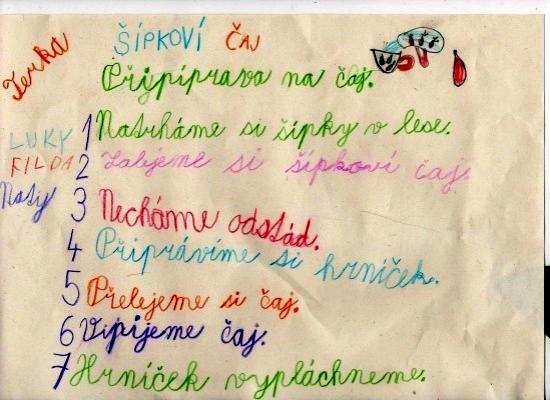 Terka
ŠÍPKOVÍ ČAJ
Přypíprava na čaj.
1 Natrháme si šípky v lese.
LUKY
FILDA 2 Zalijeme si šípkoví čaj.
Naty 3 Necháme odstád.
4 Připrávíme si hrníček.
5 Přelejeme si čaj.
6 Vipijeme čaj.
7 Hrníček vypláchneme.